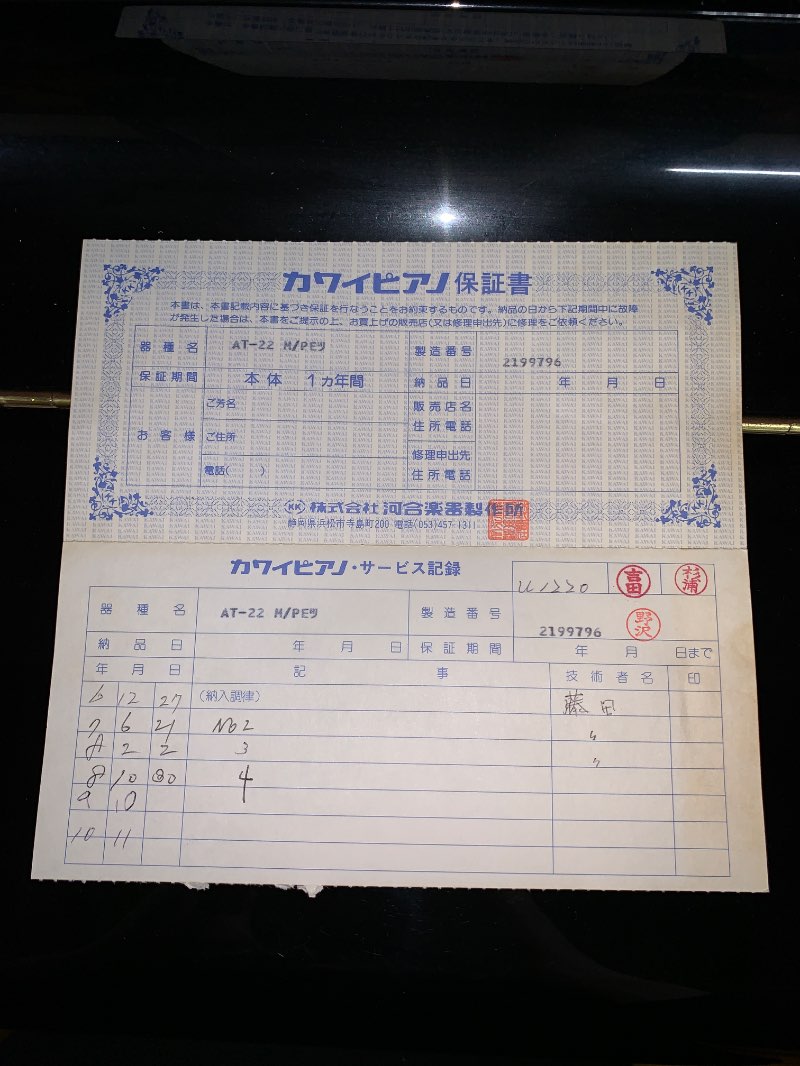 カワイピアノ 保証書
本書は、本書記載内容に基づき保証を行なうことをお約束するものです。納品の日から下記期間中に故障
が発生した場合は、本書をご提示の上、お買上げの販売店(又は修理申出先)に修理をご依頼ください。
器種名 AT-22 M/PEツ 製造番号 2199796
保証期間 本体 1ヵ年間 納品日 年 月 日
お客様 ご芳名 販売店名
住所電話
ご住所
修理申出先
電話( ) 住所電話
KK 株式会社 河合楽器製作所
静岡県浜松市寺島町200 電話(053)457-1311
カワイピアノ・サービス記録
U1220 吉田 杉浦
器種名 AT-22 M/PEツ 製造番号 2199796 野沢
納品日 年 月 日 保証期間 年 月 日まで
年 月 日 記事 技術者名 印
6 12 27 (納入調律) 藤田
7 6 21 NO2 〃
8 2 2 3 〃
8 10 30 4
9 10
10 11